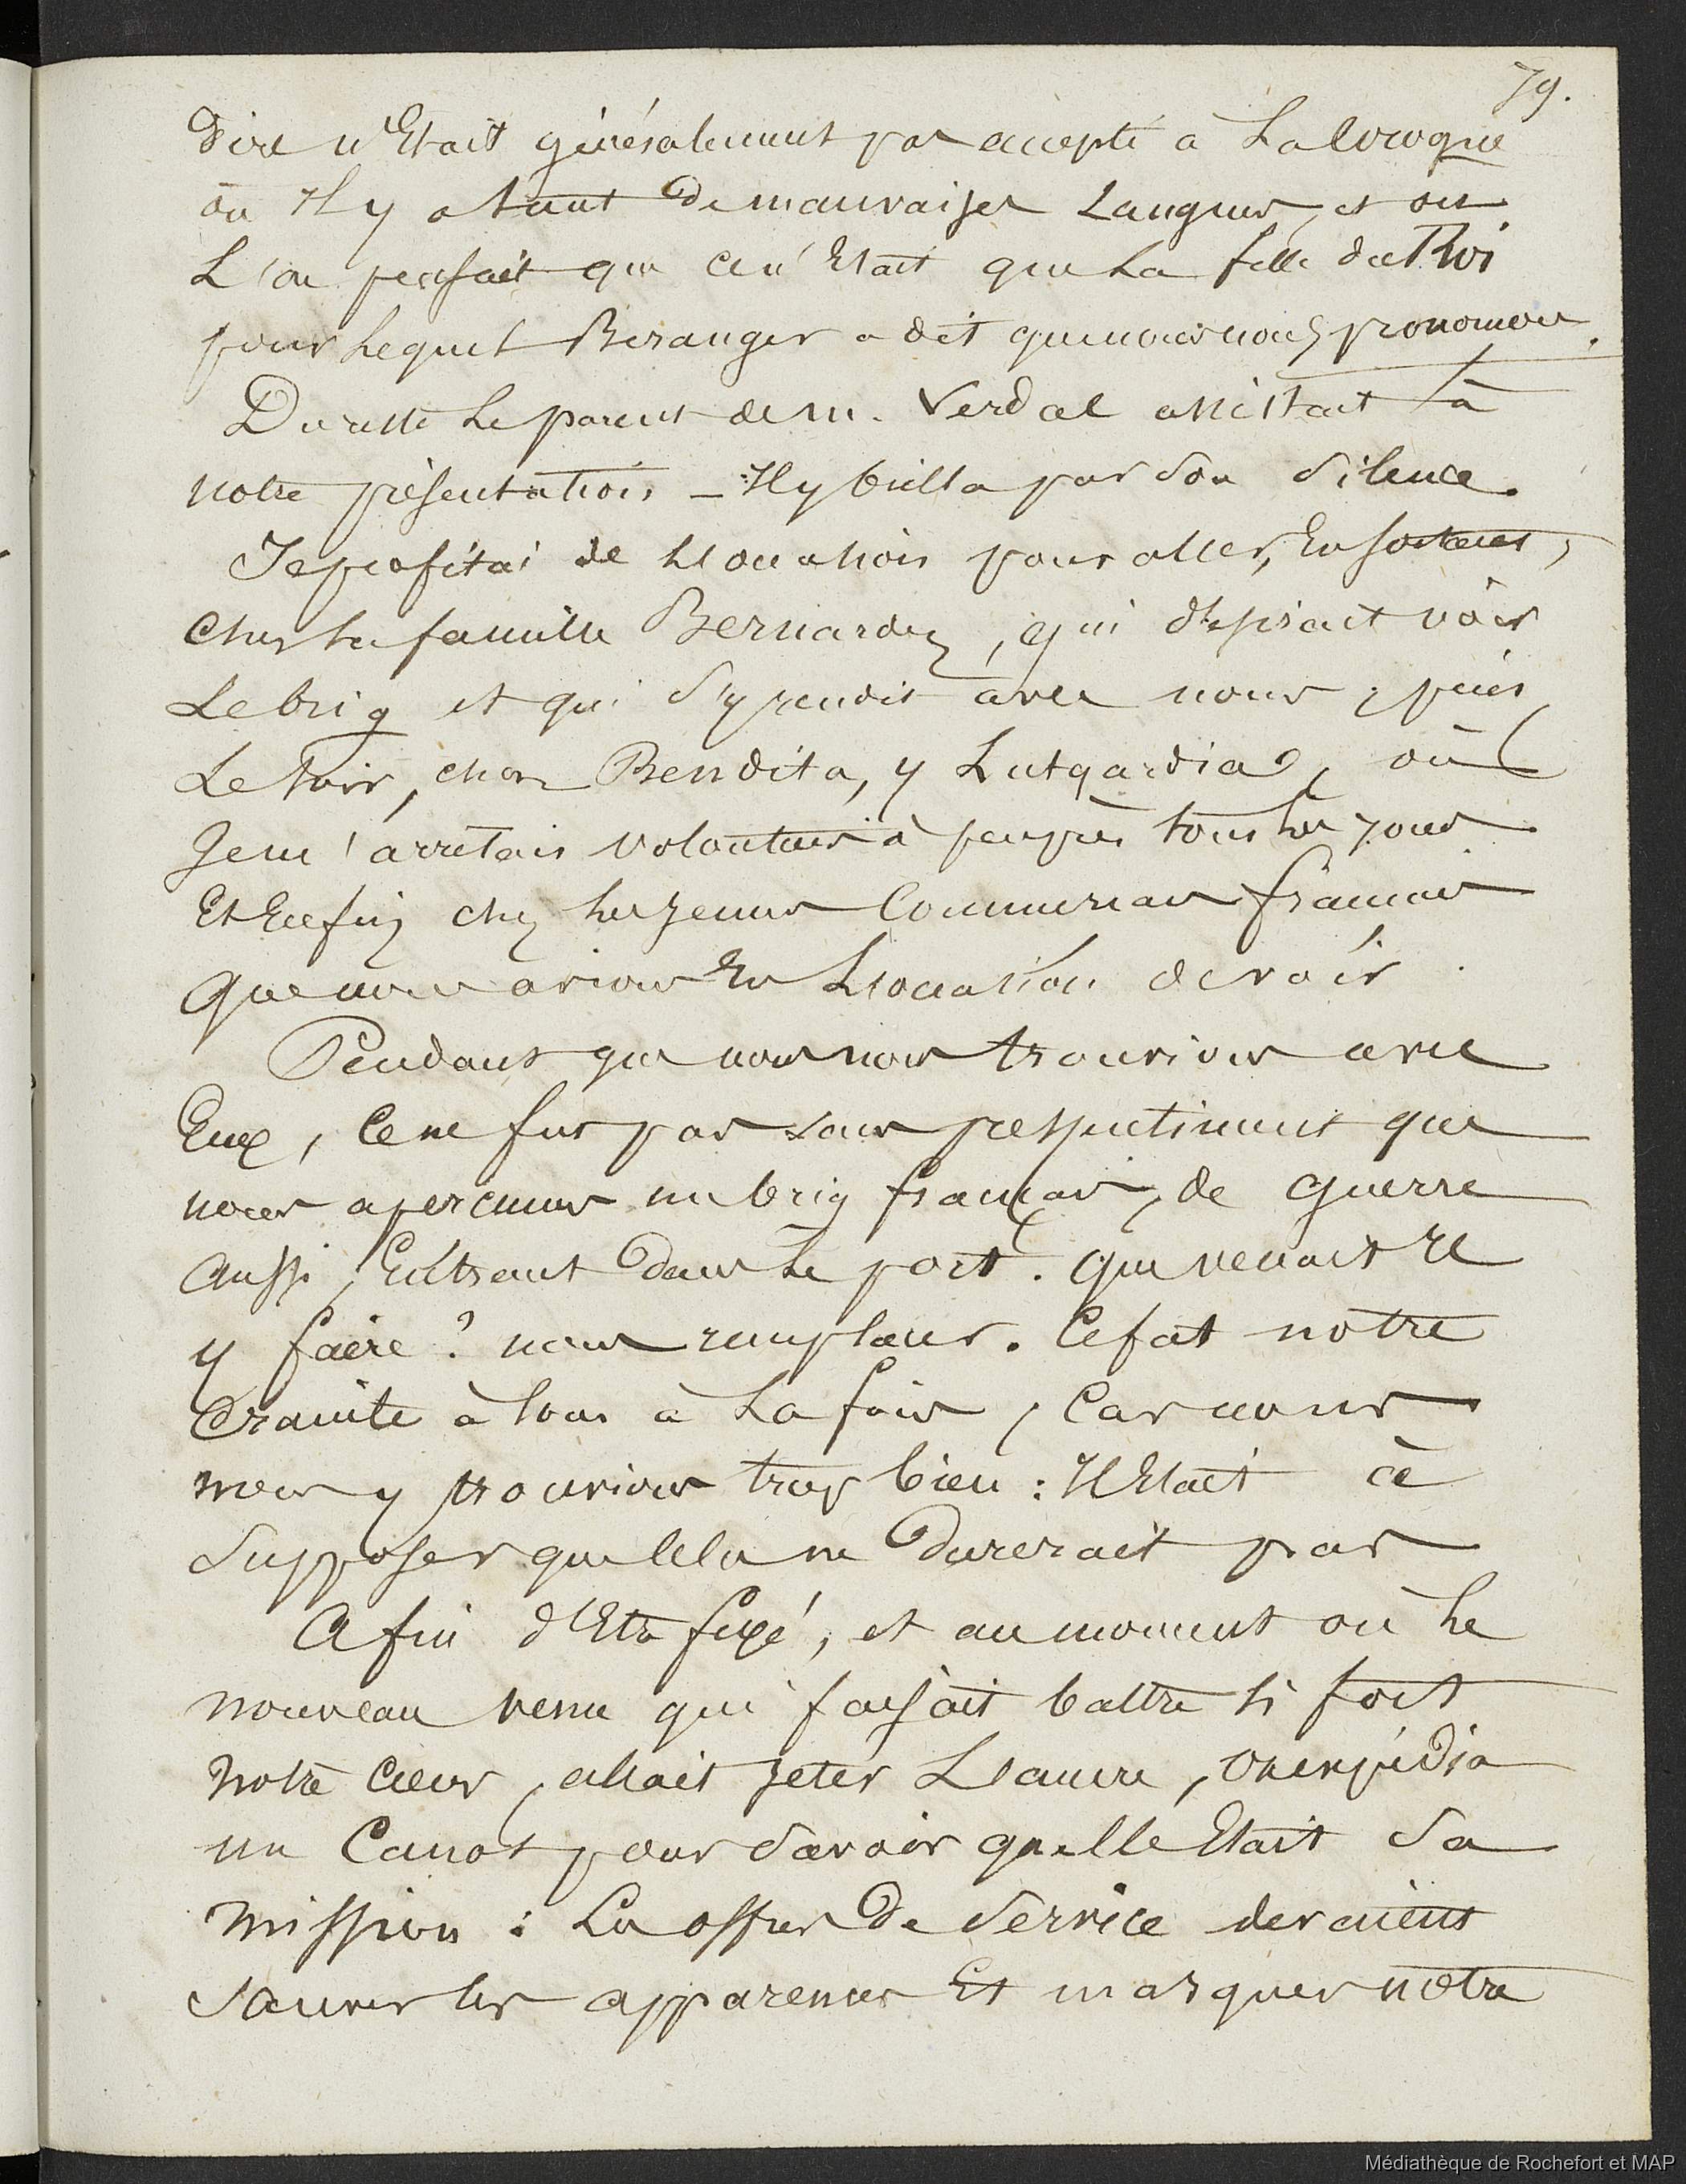 79.
Dire n'Etait généralement pas accepté à La Corogne
où Il y a tant De mauvaises Langues, et où
L'on pensait que ce n'Etait que La fille du Roi
pour Lequel Beranger a dit que nous nous prononcer.
Du reste Le parent de M. Verdal assistait à
notre présentation – Il y brilla par Son Silence.
Je profitai de L'occasion pour aller, En sortant,
Chez La famille Bernardez, qui désirait voir
Le brig et qui S'y rendit avec nous ; puis,
Le Soir, chez Bendita, y Lutgardia, où
Je m'arrêtais volontiers à peu près tous Les jours
Et Enfin chez Les jeunes Commerçans français
que nous avions Eu L'occasion de voir.
Pendant que nous nous trouvions avec
Eux, Ce ne fut pas sans
nous aperçumes un brig français, de guerre
aussi, Entrant Dans Le port. que venait Il
y faire ? nous remplacer. Ce fut notre
Crainte à tous à La fois, Car nous
nous y trouvions trop bien : Il Etait à
Supposer que Cela ne Durerait pas
Afin d'Etre fixé, et au moment où Le
nouveau venu qui faisait battre si fort
notre Cœur, allait jeter L'ancre, on expédia
un Canot pour Savoir quelle Etait Sa
mission : Les offres De Service devaient
Sauver Les apparences Et masquer notre
Médiathèque de Rochefort et MAP